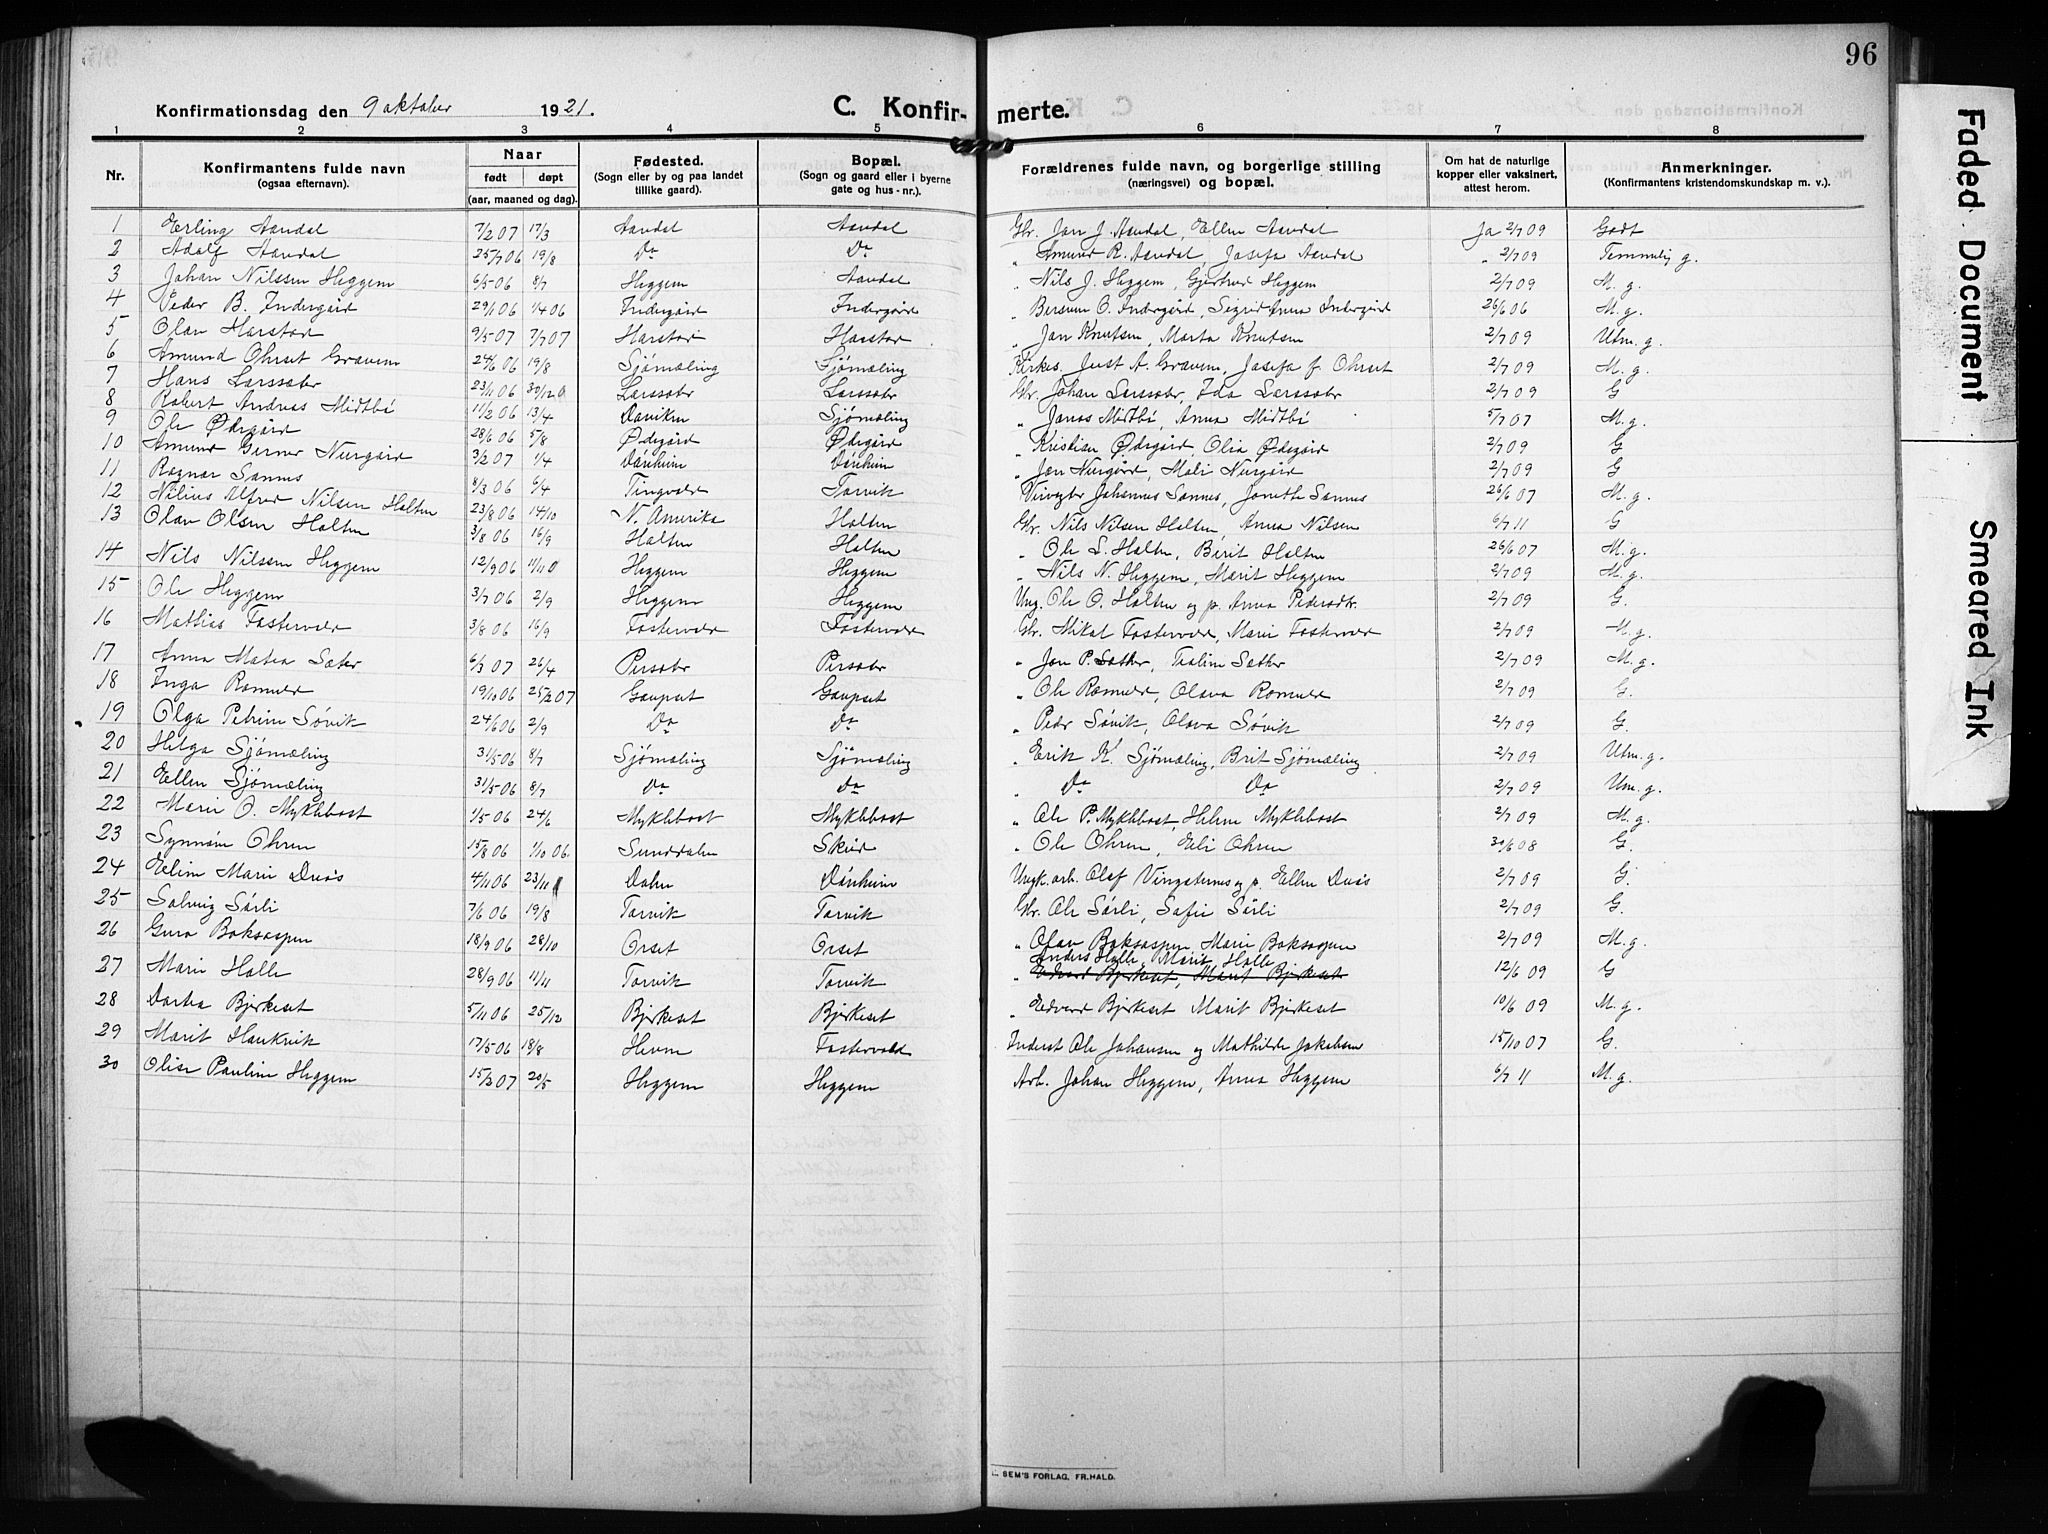 96
Konfirmationsdag den 9 oktober 1921.
C. Konfir- merte.
1 2 3 4 5 6 7 8
Nr.
Konfirmantens fulde navn (ogsaa efternavn).
Naar
født døpt
(aar, maaned og dag).
Fødested. (Sogn eller by og paa landet tillike gaard).
Bopæl. (Sogn og gaard eller i byerne gate og hus-nr.).
Forældrenes fulde navn, og borgerlige stilling (næringsvei) og bopæl.
Om hat de naturlige kopper eller vaksinert, attest herom.
Anmerkninger. (Konfirmantens kristendomskundskap m. v.).
1 Erling Aandal 7/2 07 17/3 Aandal Aandal Gbr. Jon J. Aandal, Ellen Aandal Ja 2/7 09 Godt
2 Adolf Aandal 25/7 06 19/8 Do Do " Amund R. Aandal, Josefa Aandal " 2/7 09 Temmelig g.
3 Johan Nilssen Heggem 6/5 06 8/7 Heggem Aandal " Nils J. Heggem, Gjertrud Heggem 2/7 09 M. g.
4 Peder B. Indergård 29/1 06 1/4 06 Indergård Indergård " Bersvein O. Indergård, Sigrid Anna Indergård 26/6 06 M. g.
5 Olav Harstad 9/5 07 7/7 07 Harstad Harstad " Jon Knutsen, Marta Knutsen 2/7 09 Utm. g.
6 Amund Ohrset Gravem 24/6 06 19/8 Sjømæling Sjømæling Kirkes. Just A. Gravem, Josefa f. Ohrset 2/7 09 M. g.
7 Hans Larssæter 23/11 06 30/12 0 Larssæter Larssæter Gbr. Johan Larssæter, Ida Larssæter 2/7 09 G
8 Robert Andreas Midtbö 11/2 06 13/4 Daviken Sjømæling " Jonas Midtbö, Anna Midtbö 5/7 07 M. g.
9 Ole Ødegård 28/6 06 5/8 Ødegård Ødegård " Kristian Ødegård, Olia Ødegård 2/7 09 G
10 Amund Gerner Nergård 3/2 07 1/4 Dönheim Dönheim " Jon Nergård, Mali Nergård 2/7 09 G
11 Ragnar Sannes 8/3 06 6/4 Tingvold Torvik Veivogter Johannes Sannes, Jonette Sannes 26/6 07 M. g.
12 Nilius Alfred Nilsen Halten 23/8 06 14/10 N. Amerika Halten Gbr. Nils Nilsen Halten, Anna Nilsen 6/7 11 G
13 Olav Olsen Halten 3/8 06 16/9 Halten Halten " Ole L. Halten, Berit Halten 26/6 07 M. g.
14 Nils Nilssen Heggem 12/9 06 11/11 0 Heggem Heggem " Nils N. Heggem, Marit Heggem 2/7 09 M. g.
15 Ole Heggem 3/7 06 2/9 Heggem Heggem Ung. Ole O. Halten og p. Anna Pedersdtr. 2/7 09 G.
16 Mattias Fostervold 3/8 06 16/9 Fostervold Fostervold Gbr. Mikal Fostervold, Marie Fostervold 2/7 09 M. g.
17 Anna Matea Sæter 6/3 07 26/4 Persæter Persæter " Jon P. Sæther, Traline Sæther 2/7 09 M. g.
18 Inga Romuld 19/10 06 25/2 07 Gaupset Gaupset " Ole Romuld, Olava Romuld 2/7 09 G.
19 Olga Petrine Søvik 24/6 06 2/9 Do Do " Peder Søvik, Olava Søvik 2/7 09 G.
20 Helga Sjömæling 31/5 06 8/7 Sjömæling Sjömæling " Erik K. Sjömæling, Brit Sjömæling 2/7 09 Utm. g.
21 Ellen Sjömæling 31/5 06 8/7 Do Do " Do Do 2/7 09 Um. g.
22 Marie O. Myklebost 1/5 06 24/6 Myklebost Myklebost " Ole P. Myklebost, Helene Myklebost 2/7 09 M. g.
23 Synnöve Ohren 15/8 06 1/10 06. Sunddalen Skeid " Ole Ohren, Eli Ohren 30/6 08 G.
24 Eline Marie Dués 4/11 06 23/11 Dalen Dönheim Ungk. arb. Olaf Vingsternes og p. Ellen Dués 2/7 09 G.
25 Solveig Sørli 7/6 06 19/8 Torvik Torvik Gbr. Ole Sørli, Sofie Sørli 2/7 09 G.
26 Guro Boksaspen 18/9 06 28/10 Orset Orset " Olav Boksaspen, Marie Boksaspen 2/7 09 M. g.
Anders Holle, Marit Holle
27 Marie Holle 28/9 06 11/11 Torvik Torvik " Edvard Bjerkeset, Marit Bjerkeset 12/6 09 G
28 Dortea Bjerkeset 5/11 06 25/12 Bjerkeset Bjerkeset " Edvard Bjerkeset Marit Bjerkeset 10/6 09 M. g.
29 Marit Haukvik 17/5 06 18/8 Hevne Fostervold Inderst Ole Johansen og Mathilde Jakobsen 15/10 07 G.
30 Olise Pauline Heggem 15/3 07 20/5 Heggem Heggem Arb. Johan Heggem, Anna Heggem 6/7 11 M. g.
SEM'S FORLAG, FR.HALD.
Faded Document
Smeared Ink